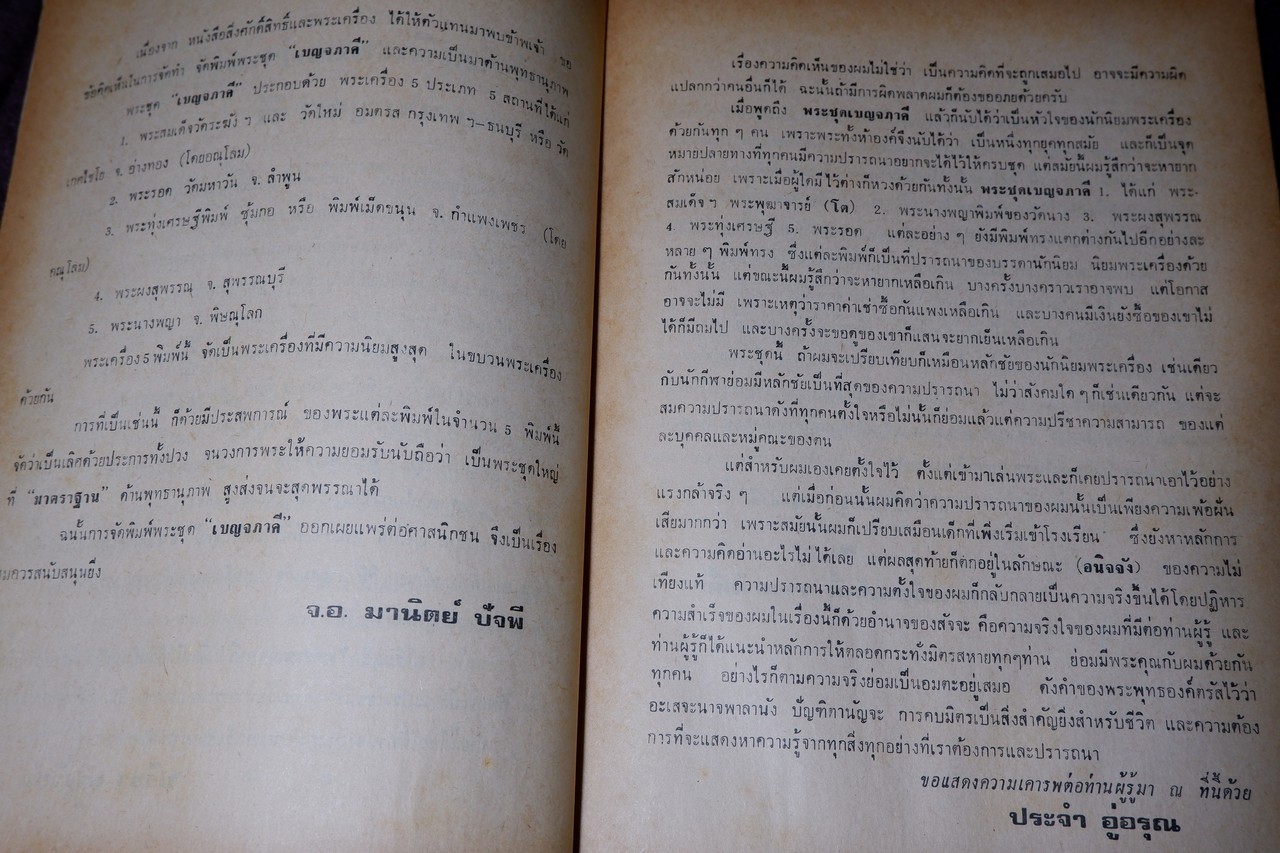 เนื่องจาก หนังสือสิ่งศักดิ์สิทธิ์และพระเครื่อง ได้ให้ตัวแทนมาพบข้าพเจ้า ขอ
ข้อคิดเห็นในการจัดทำ จัดพิมพ์พระชุด "เบญจภาคี" และความเป็นมาด้านพุทธานุภาพ
พระชุด "เบญจภาคี" ประกอบด้วย พระเครื่อง 5 ประเภท 5 สถานที่ได้แก่
1. พระสมเด็จวัดระฆัง ฯ และ วัดใหม่ อมตรส กรุงเทพ ฯ-ธนบุรี หรือ วัด
เกศไชโย จ. อ่างทอง (โดยอณุโลม)
2. พระรอด วัดมหาวัน จ. ลำพูน
3. พระทุ่งเศรษฐีพิมพ์ ซุ้มกอ หรือ พิมพ์เม็ดขนุน จ. กำแพงเพชร (โดย
อณุโลม)
4. พระผงสุพรรณ จ. สุพรรณบุรี
5. พระนางพญา จ. พิษณุโลก
พระเครื่อง 5 พิมพ์นี้ จัดเป็นพระเครื่องที่มีความนิยมสูงสุด ในขบวนพระเครื่อง
ด้วยกัน
การที่เป็นเช่นนี้ ก็ด้วยมีประสพการณ์ ของพระแต่ละพิมพ์ในจำนวน 5 พิมพ์นี้
จัดว่าเป็นเลิศด้วยประการทั้งปวง จนวงการพระให้ความยอมรับนับถือว่า เป็นพระชุดใหญ่
ที่ "มาตราฐาน" ด้านพุทธานุภาพ สูงส่งจนจะสุดพรรณาได้
ฉนั้นการจัดพิมพ์พระชุด "เบญจภาคี" ออกเผยแพร่ต่อศาสนิกชน จึงเป็นเรื่อง
มควรสนับสนุนยิ่ง
จ.อ. มานิตย์ ปัจพี
เรื่องความคิดเห็นของผมไม่ใช่ว่า เป็นความคิดที่จะถูกเสมอไป อาจจะมีความผิด
แปลกกว่าคนอื่นก็ได้ ฉะนั้นถ้ามีการผิดพลาดผมก็ต้องขออภยด้วยครับ
เมื่อพูดถึง พระชุดเบญจภาคี แล้วก็นับได้ว่าเป็นหัวใจของนักนิยมพระเครื่อง
ด้วยกันทุก ๆ คน เพราะพระทั้งห้าองค์จึงนับได้ว่า เป็นหนึ่งทุกยุคทุกสมัย และก็เป็นจุด
หมายปลายทางที่ทุกคนมีความปรารถนาอยากจะได้ไว้ให้ครบชุด แต่สมัยนี้ผมรู้สึกว่าจะหายาก
สักหน่อย เพราะเมื่อผู้ใดมีไว้ต่างก็หวงด้วยกันทั้งนั้น พระชุดเบญจภาคี 1. ได้แก่ พระ-
สมเด็จ ฯ พระพุฒาจารย์ (โต) 2. พระนางพญาพิมพ์ของวัดนาง 3. พระผงสุพรรณ
4. พระทุ่งเศรษฐี 5. พระรอด แต่ละอย่าง ๆ ยังมีพิมพ์ทรงแตกต่างกันไปอีกอย่างละ
หลาย ๆ พิมพ์ทรง ซึ่งแต่ละพิมพ์ก็เป็นที่ปรารถนาของบรรดานักนิยม นิยมพระเครื่องด้วย
กันทั้งนั้น แต่ขณะนี้ผมรู้สึกว่าจะหายากเหลือเกิน บางครั้งบางคราวเราอาจพบ แต่โอกาส
อาจจะไม่มี เพราะเหตุว่าราคาค่าเช่าซื้อกันแพงเหลือเกิน และบางคนมีเงินยังซื้อของเขาไม่
ได้ก็มีถมไป และบางครั้งจะขอดูของเขาก็แสนจะยากเย็นเหลือเกิน
พระชุดนี้ ถ้าผมจะเปรียบเทียบก็เหมือนหลักชัยของนักนิยมพระเครื่อง เช่นเดียว
กับนักกีฬาย่อมมีหลักชัยเป็นที่สุดของความปรารถนา ไม่ว่าสังคมใด ๆ ก็เช่นเดียวกัน แต่จะ
สมความปรารถนาดังที่ทุกคนตั้งใจหรือไม่นั้นก็ย่อมแล้วแต่ความปรีชาความสามารถ ของแต่
ละบุคคลและหมู่คณะของตน
แต่สำหรับผมเองเคยตั้งใจไว้ ตั้งแต่เข้ามาเล่นพระและก็เคยปรารถนาเอาไว้อย่าง
แรงกล้าจริง ๆ แต่เมื่อก่อนนั้นผมคิดว่าความปรารถนาของผมนั้นเป็นเพียงความเพ้อฝัน
เสียมากกว่า เพราะสมัยนั้นผมก็เปรียบเสมือนเด็กที่เพิ่งเริ่มเข้าโรงเรียน ซึ่งยังหาหลักการ
และความคิดอ่านอะไรไม่ได้เลย แต่ผลสุดท้ายก็ตกอยู่ในลักษณะ (อนิจจัง) ของความไม่
เทียงแท้ ความปรารถนาและความตั้งใจของผมก็กลับกลายเป็นความจริงขึ้นได้โดยปฏิหาร
ความสำเร็จของผมในเรื่องนี้ก็ด้วยอำนาจของสัจจะ คือความจริงใจของผมที่มีต่อท่านผู้รู้ และ
ท่านผู้รู้ก็ได้แนะนำหลักการให้ตลอดกระทั่งมิตรสหายทุกๆท่าน ย่อมมีพระคุณกับผมด้วยกัน
ทุกคน อย่างไรก็ตามความจริงย่อมเป็นอมตะอยู่เสมอ ดังคำของพระพุทธองค์ตรัสไว้ว่า
อะเสจะนาจพาลานัง ปัญฑิตานัญจะ การคบมิตรเป็นสิ่งสำคัญยิ่งสำหรับชีวิต และความต้อง
การที่จะแสดงหาความรู้จากทุกสิ่งทุกอย่างที่เราต้องการและปรารถนา
ขอแสดงความเคารพต่อท่านผู้รู้มา ณ ที่นี้ด้วย
ประจำ อู่อรุณ